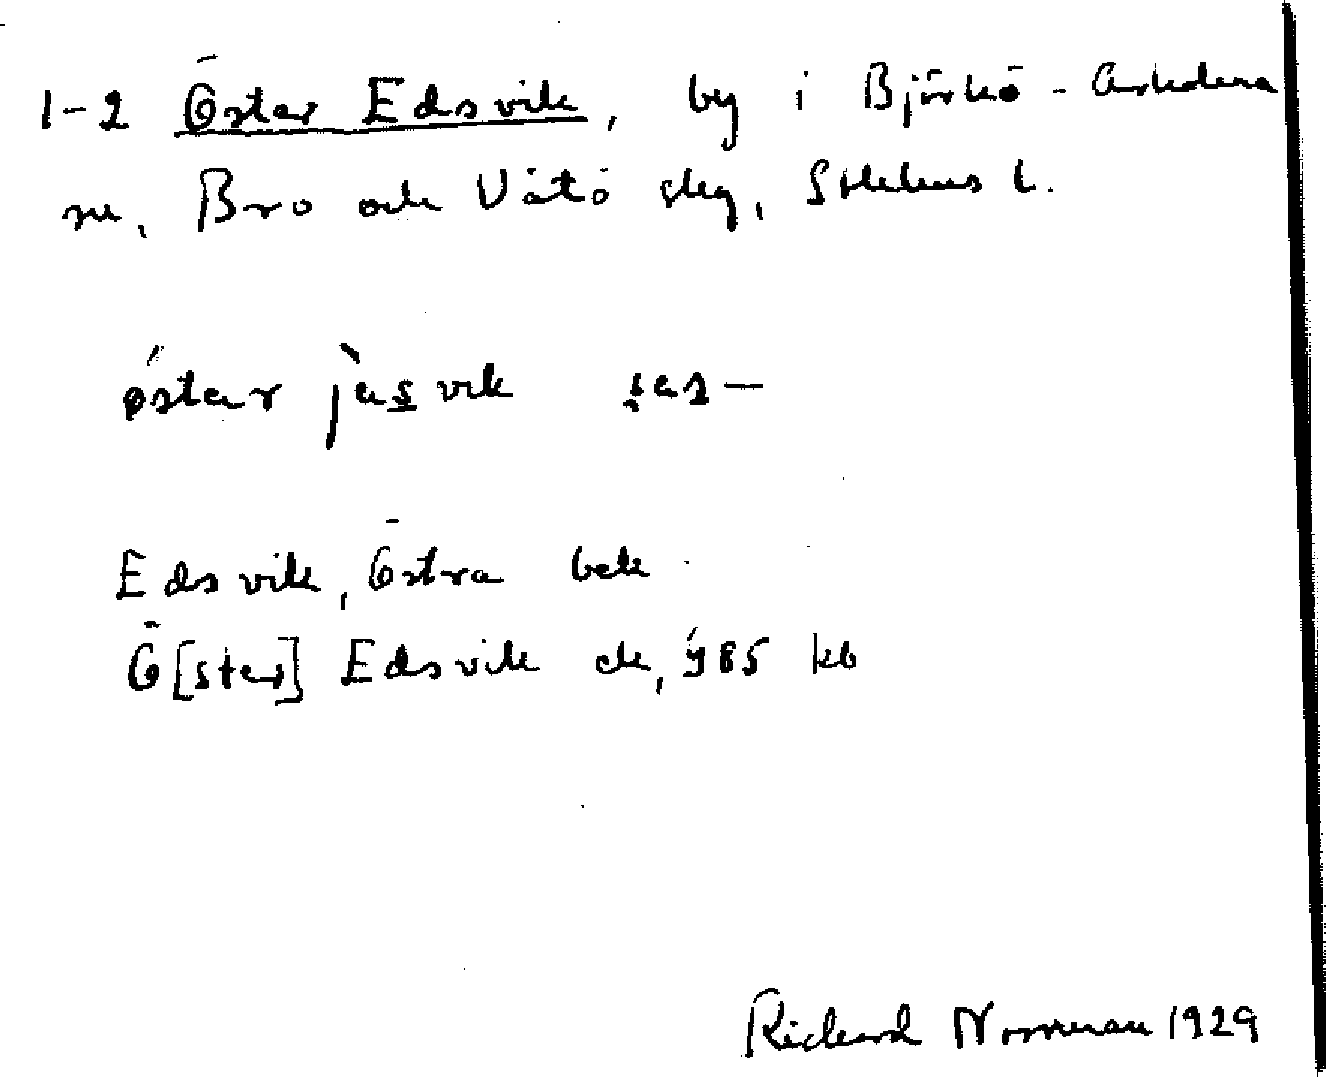 1-2 Öster Edsvik, by i Björkö-Arholma
sn, Bro och Vätö slg, Sthlms l.
östar jàs̠vik s̠as—
Edsvik, Östra bek
Ö[ster] Edsvik ck, 985 kb
Rickard Norrman 1929